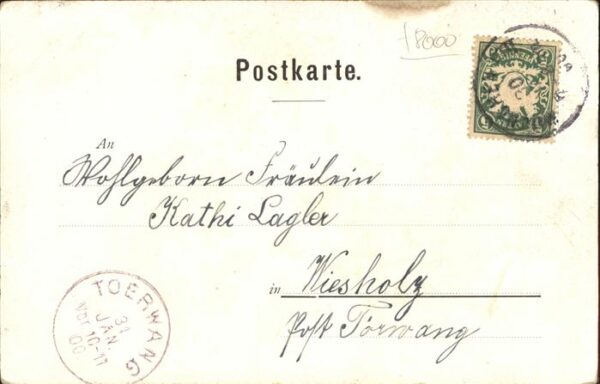 8000
Postkarte.
An
Wohlgeborn Fräulein
Kathi Lagler
in Wiesholz
Post Törwang
TOERWANG
31
JAN
Vor 10-11
00